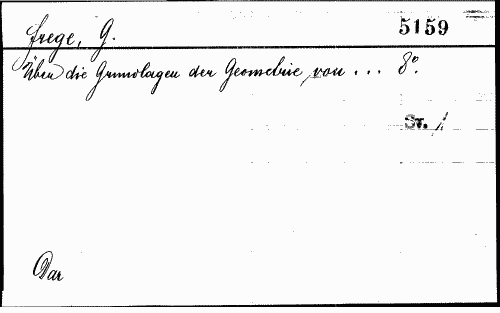 Frege, G. 5159
Über die Grundlagen der Geometrie, von ... 8°.
St. 1
Dar